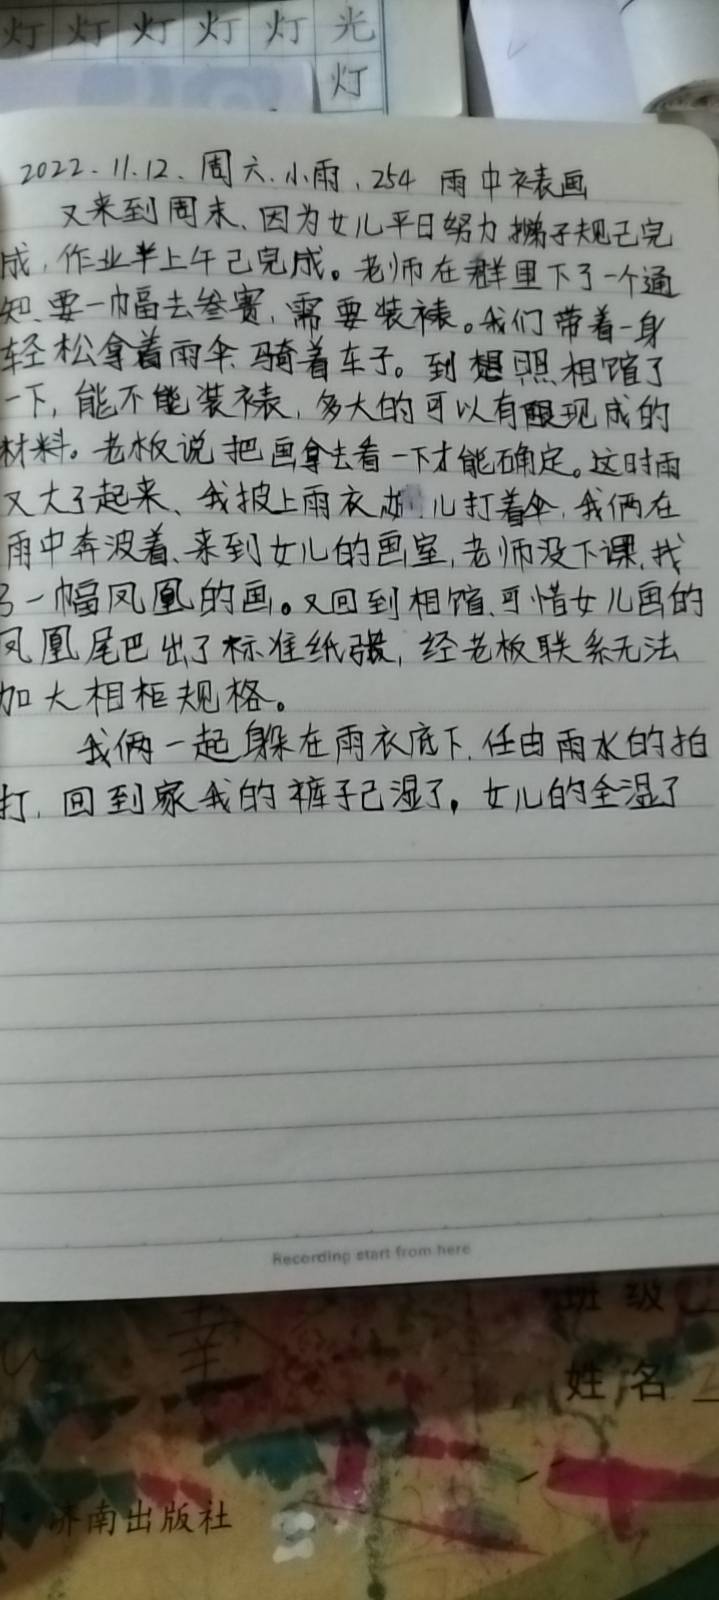 灯灯灯灯灯光
灯
2022.11.12.周六.小雨.254 雨中裱画
又来到周末、因为女儿平日努力 弟子规已完
成,作业半上午已完成。老师在群里下了一个通
知、要一幅去叁赛,需要装裱。我们带着一身
轻松拿着雨伞、骑着车子。到想照相馆了
一下,能不能装裱,多大的可以有跟现成的
材料。老板说把画拿去看一下才能确定。这时雨
又大了起来、我披上雨衣 儿打着伞,我俩在
雨中奔波着、来到女儿的画室,老师没下课,找
了一幅凤凰的画。又回到相馆、可惜女儿画的
凤凰尾巴出了标准纸张,经老板联系无法
加大相柜规格。
我俩一起躲在雨衣底下,任由雨水的拍
打,回到家我的裤子已湿了,女儿的全湿了
Recording start from here
班级
姓名
济南出版社